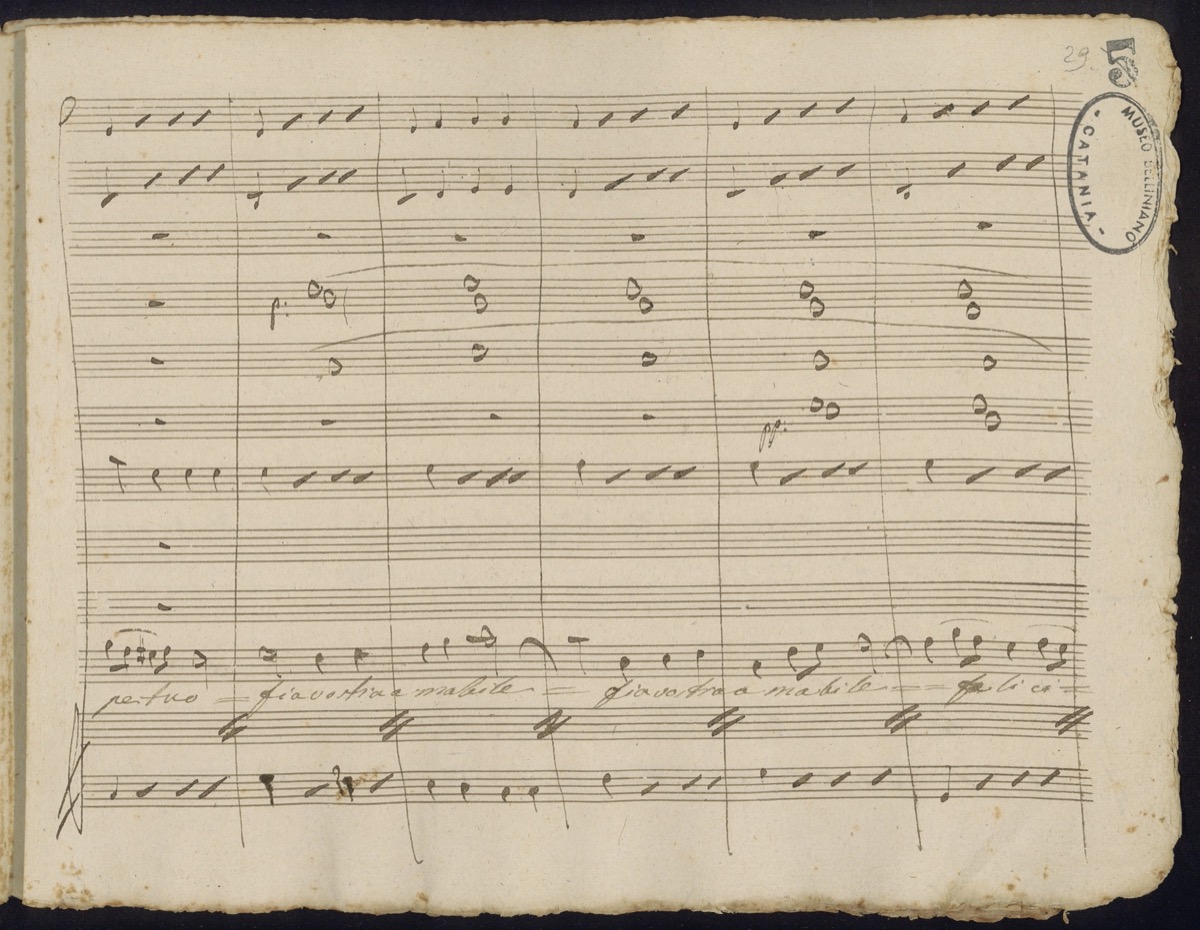 29.
53
MUSEO BELLINIANO
- CATANIA -
p:
pp:
petuo = fia vostra amabile = fia vostra amabile = = felici =